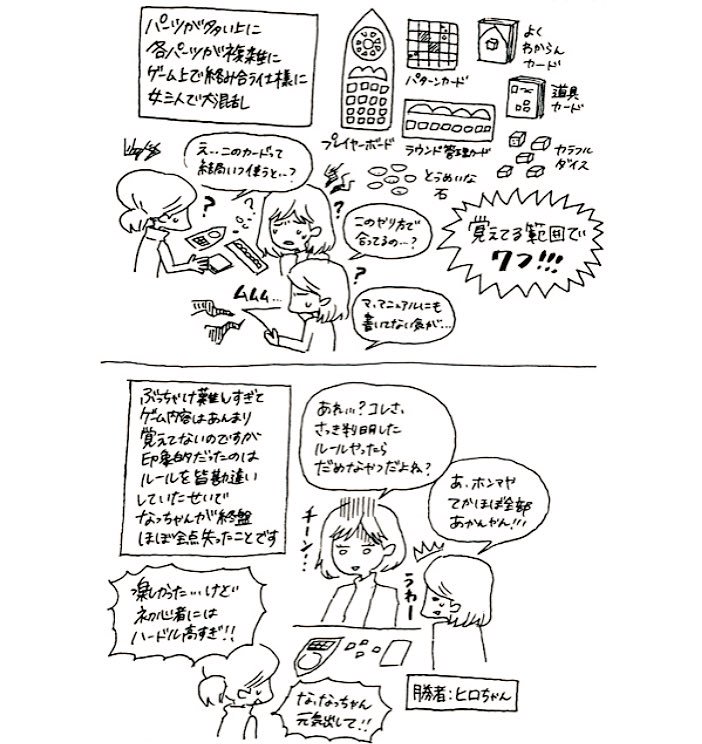 パーツが多い上に
各パーツが複雑に
ゲーム上で絡み合う仕様に
女三人で大混乱
プレイヤーボード
パターンカード
よく
わからん
カード
道具
カード
ラウンド管理カード
カラフル
ダイス
とうめいな
石
覚えてる範囲で
7つ!!!
え…このカードって
結局いつ使うと…?
?
?
?
このやり方で
合ってるの…?
ムムム…
?
マ、マニュアルにも
書いてない気が…
ぶっちゃけ難しすぎて
ゲーム内容はあんまり
覚えてないのですが
印象的だったのは
ルールを皆勘違い
していたせいで
なっちゃんが終盤
ほぼ全点失ったことです
あれ…?コレさ、
さっき判明した
ルールやったら
だめなやつだよね?
チーン…
あ、ホンマや
てかほぼ全部
あかんやん!!!
うわー
楽しかった…けど
初心者には
ハードル高すぎ!!
なっなっちゃん
元気出して!!
勝者:ヒロちゃん